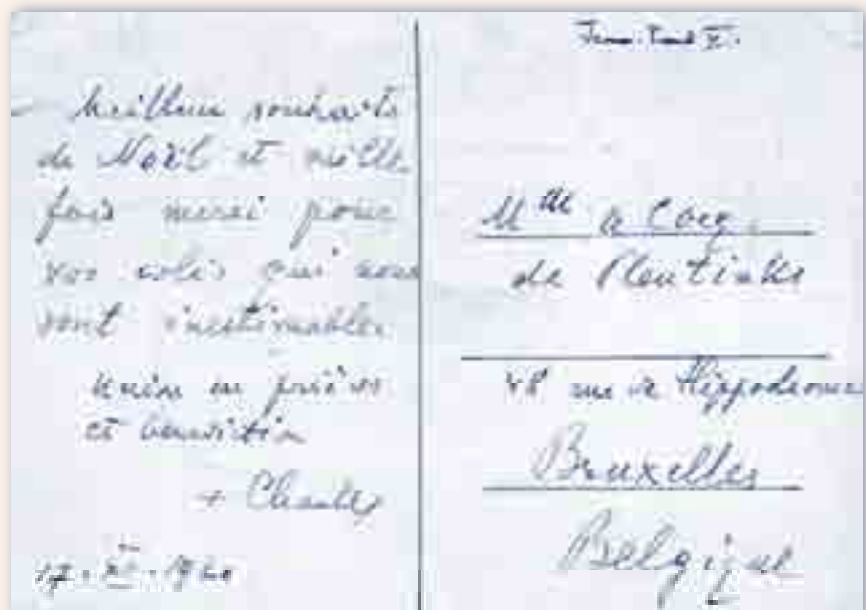 Meilleurs souhaits
de Noël et mille
fois merci pour
vos colis qui nous
sont inestimables
Union en prières
et
+ Charles
17.
Mlle
de
48 rue de Hippodrome
Bruxelles
Belgique